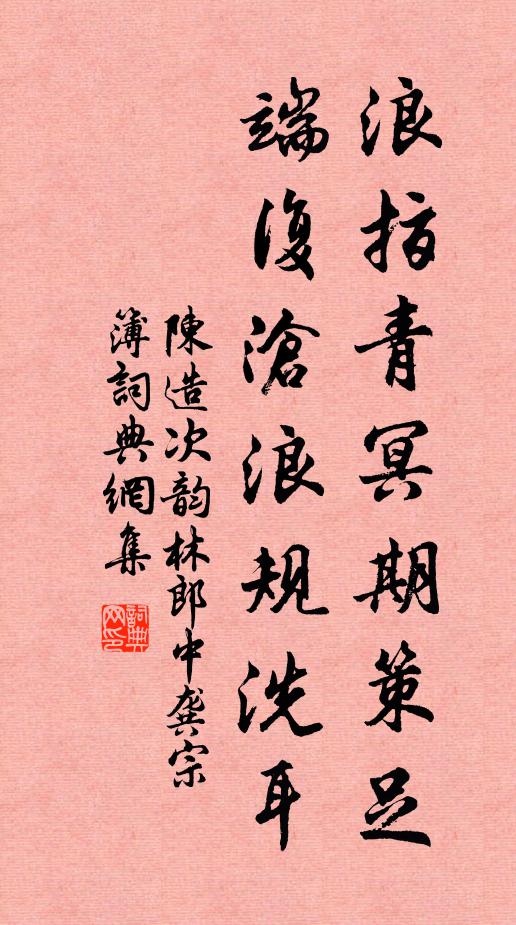 浪指青冥期策足
端復滄浪規洗耳
陳造次韵林郎中龚宗
簿詞典網集
詞典網印